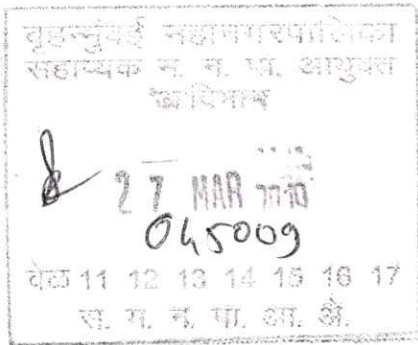 बृहन्मुंबई महानगरपालिका
सहाय्यक म. न. पा. आयुक्त
विभाग
27 MAR
045009
वेळ 11 12 13 14 15 16 17
स. म. न. पा. आ.